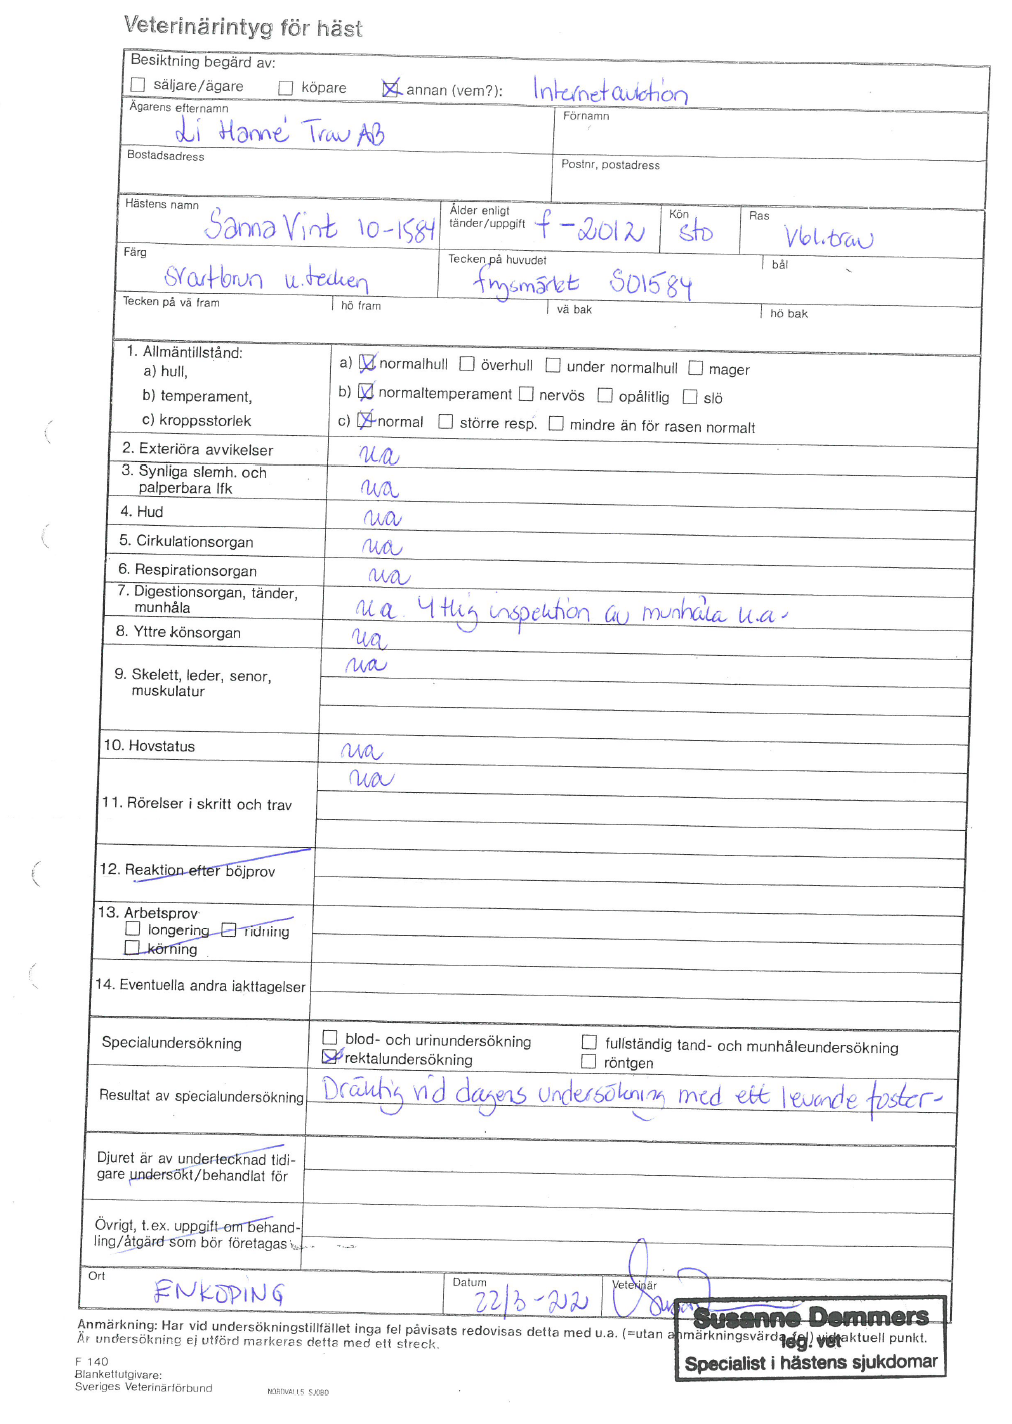 Veterinärintyg för häst
Besiktning begärd av:
säljare/ägare köpare annan (vem?): Internetauktion
Ägarens efternamn Förnamn
Li Hanné Trav AB
Bostadsadress Postnr, postadress
Hästens namn Ålder enligt tänder/uppgift Kön Ras
Sanna Vint 10-1584 f-2012 sto Vbl.trav
Färg Tecken på huvudet bål
svartbrun u.tecken frysmärkt S01584
Tecken på vä fram hö fram vä bak hö bak
1. Allmäntillstånd:
a) hull, a) normalhull överhull under normalhull mager
b) temperament, b) normaltemperament nervös opålitlig slö
c) kroppsstorlek c) normal större resp. mindre än för rasen normalt
2. Exteriöra avvikelser ua
3. Synliga slemh. och
palperbara lfk ua
4. Hud ua
5. Cirkulationsorgan ua
6. Respirationsorgan ua
7. Digestionsorgan, tänder,
munhåla ua. Ytlig inspektion av munhåla u.a-
8. Yttre könsorgan ua
9. Skelett, leder, senor,
muskulatur ua
10. Hovstatus ua
11. Rörelser i skritt och trav ua
12. Reaktion efter böjprov
13. Arbetsprov
longering ridning
körning
14. Eventuella andra iakttagelser
Specialundersökning blod- och urinundersökning fullständig tand- och munhåleundersökning
rektalundersökning röntgen
Resultat av specialundersökning Dräktig vid dagens undersökning med ett levande foster-
Djuret är av undertecknad tidi-
gare undersökt/behandlat för
Övrigt, t.ex. uppgift om behand-
ling/åtgärd som bör företagas
Ort Datum Veterinär
ENKÖPING 22/3-22
Susanne Demmers
leg. vet
Specialist i hästens sjukdomar
Anmärkning: Har vid undersökningstillfället inga fel påvisats redovisas detta med u.a. (=utan anmärkningsvärda fel) vid aktuell punkt.
Är undersökning ej utförd markeras detta med ett streck.
F 140
Blankettutgivare:
Sveriges Veterinärförbund NORDVALLS SJÖBO